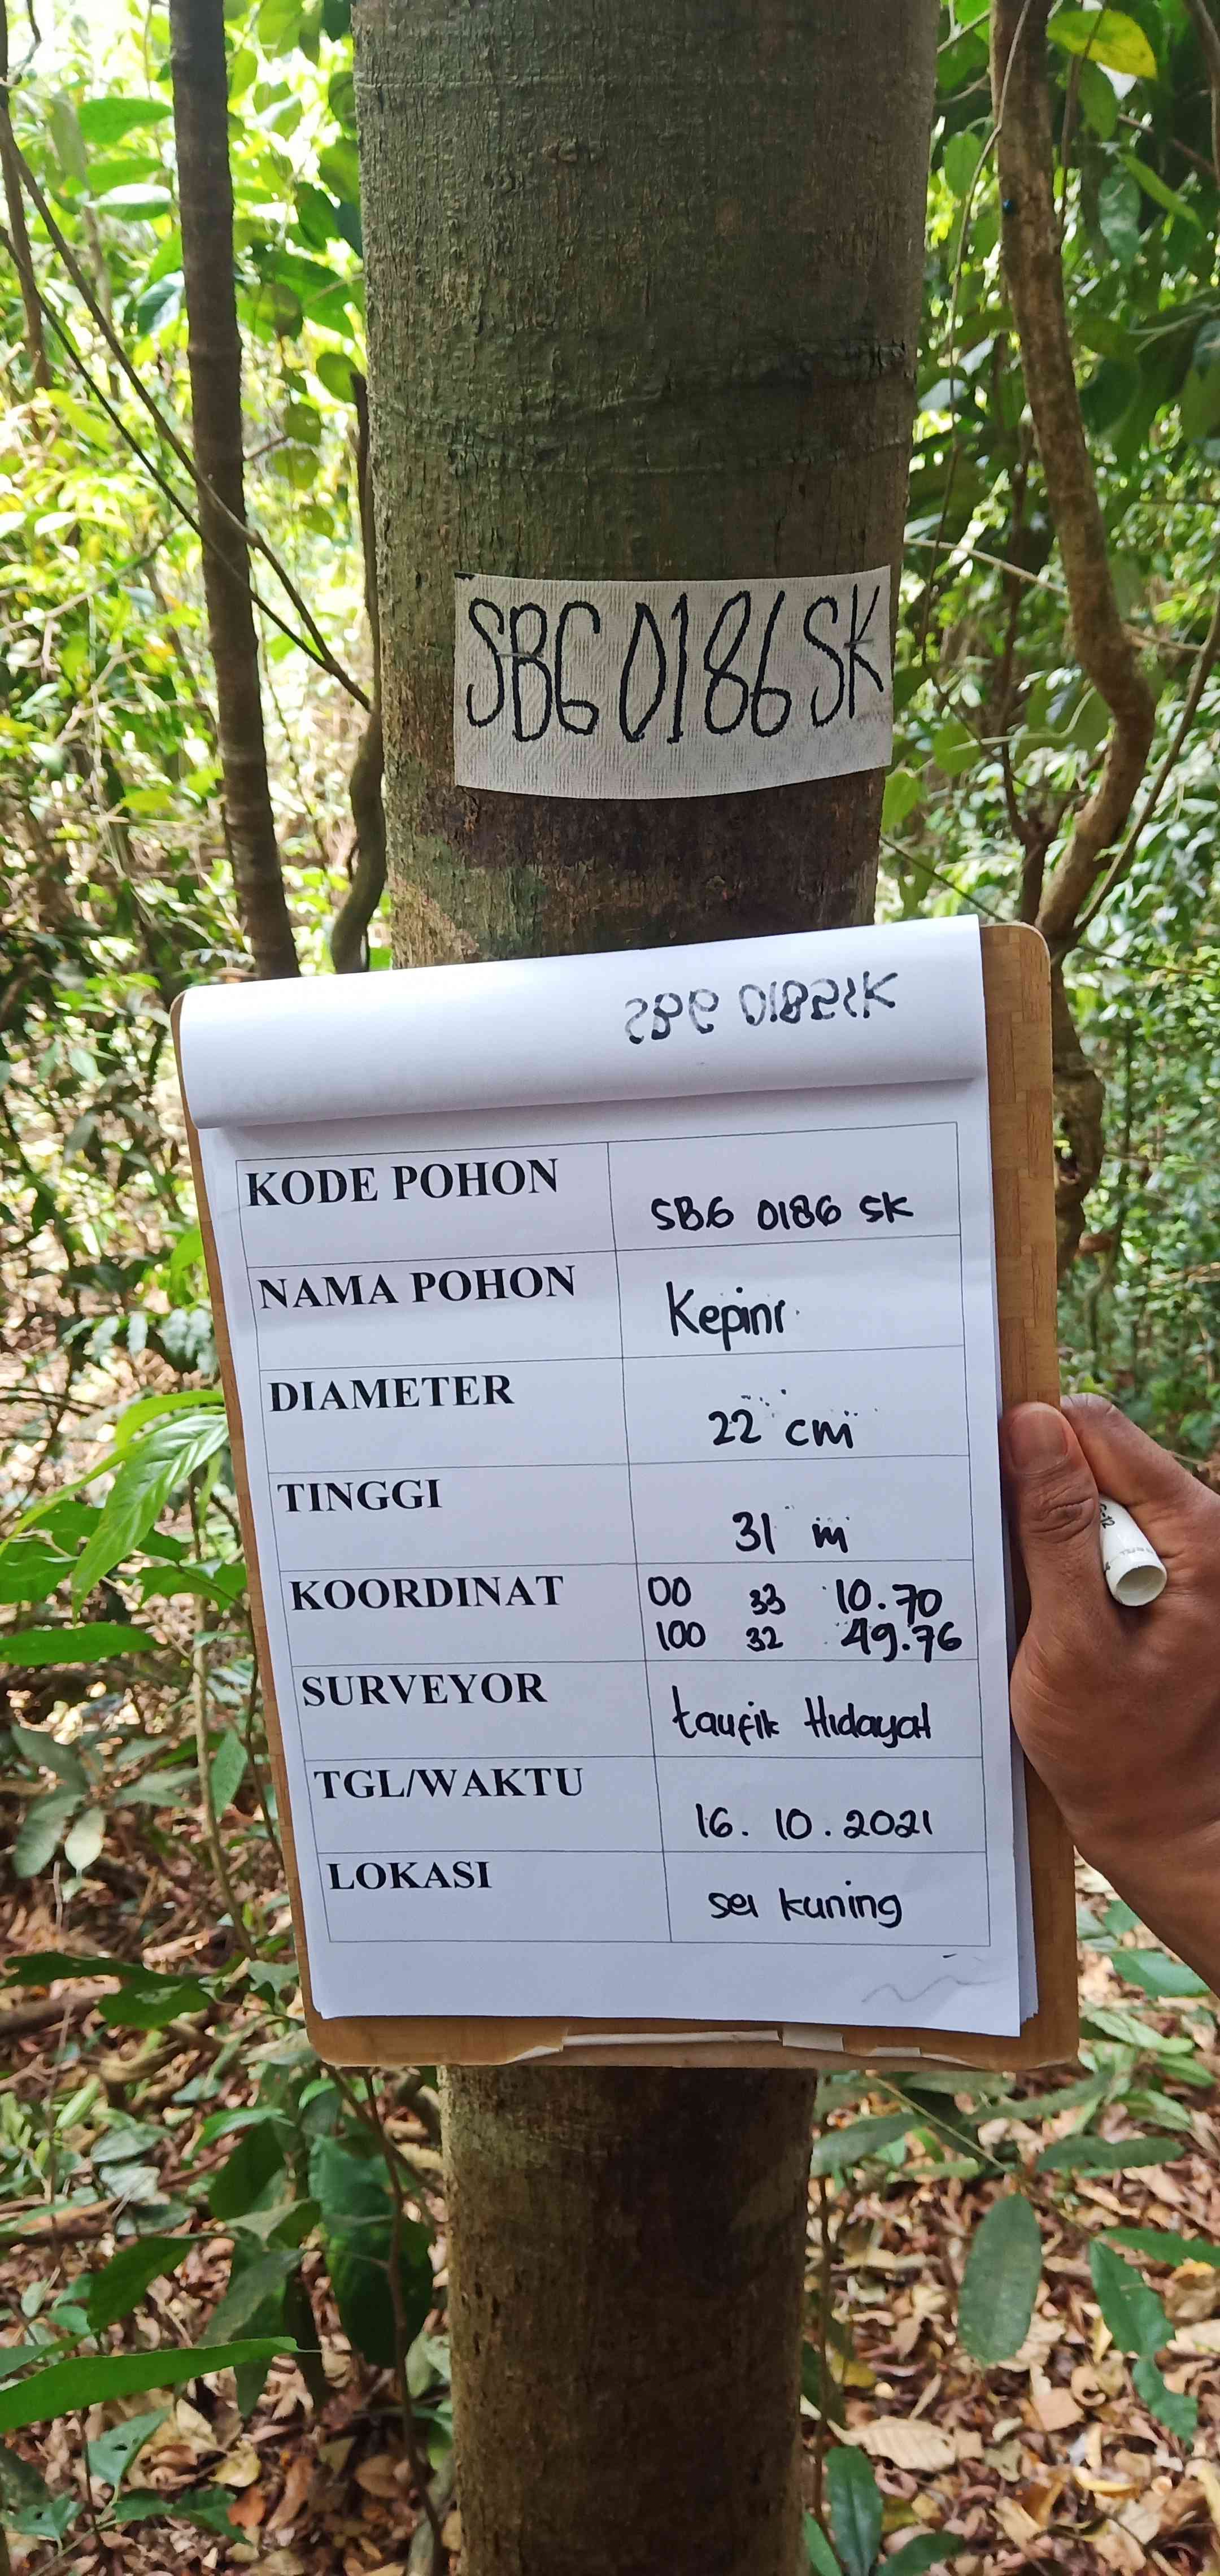 SBG 0186 SK
SBG 0185 SK
KODE POHON
SBG 0186 SK
NAMA POHON
Kepini
DIAMETER
22 cm
TINGGI
31 m
KOORDINAT
00 33 10.70
100 32 49.76
SURVEYOR
taufik Hidayat
TGL/WAKTU
16.10.2021
LOKASI
sei kuning